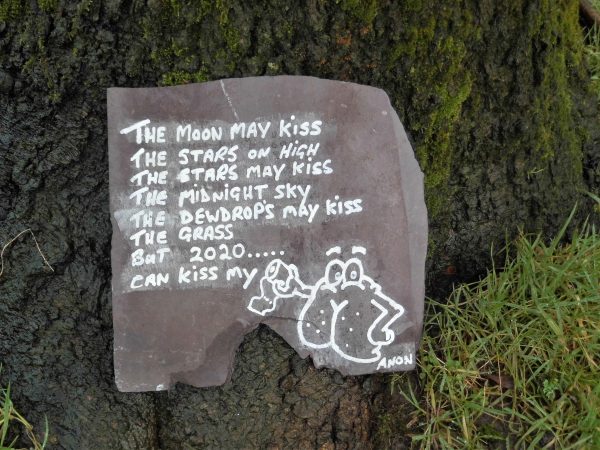 THE MOON MAY KISS
THE STARS ON HIGH
THE STARS MAY KISS
THE MIDNIGHT SKY
THE DEWDROP'S MAY KISS
THE GRASS
BUT 2020.....
CAN KISS MY
ANON